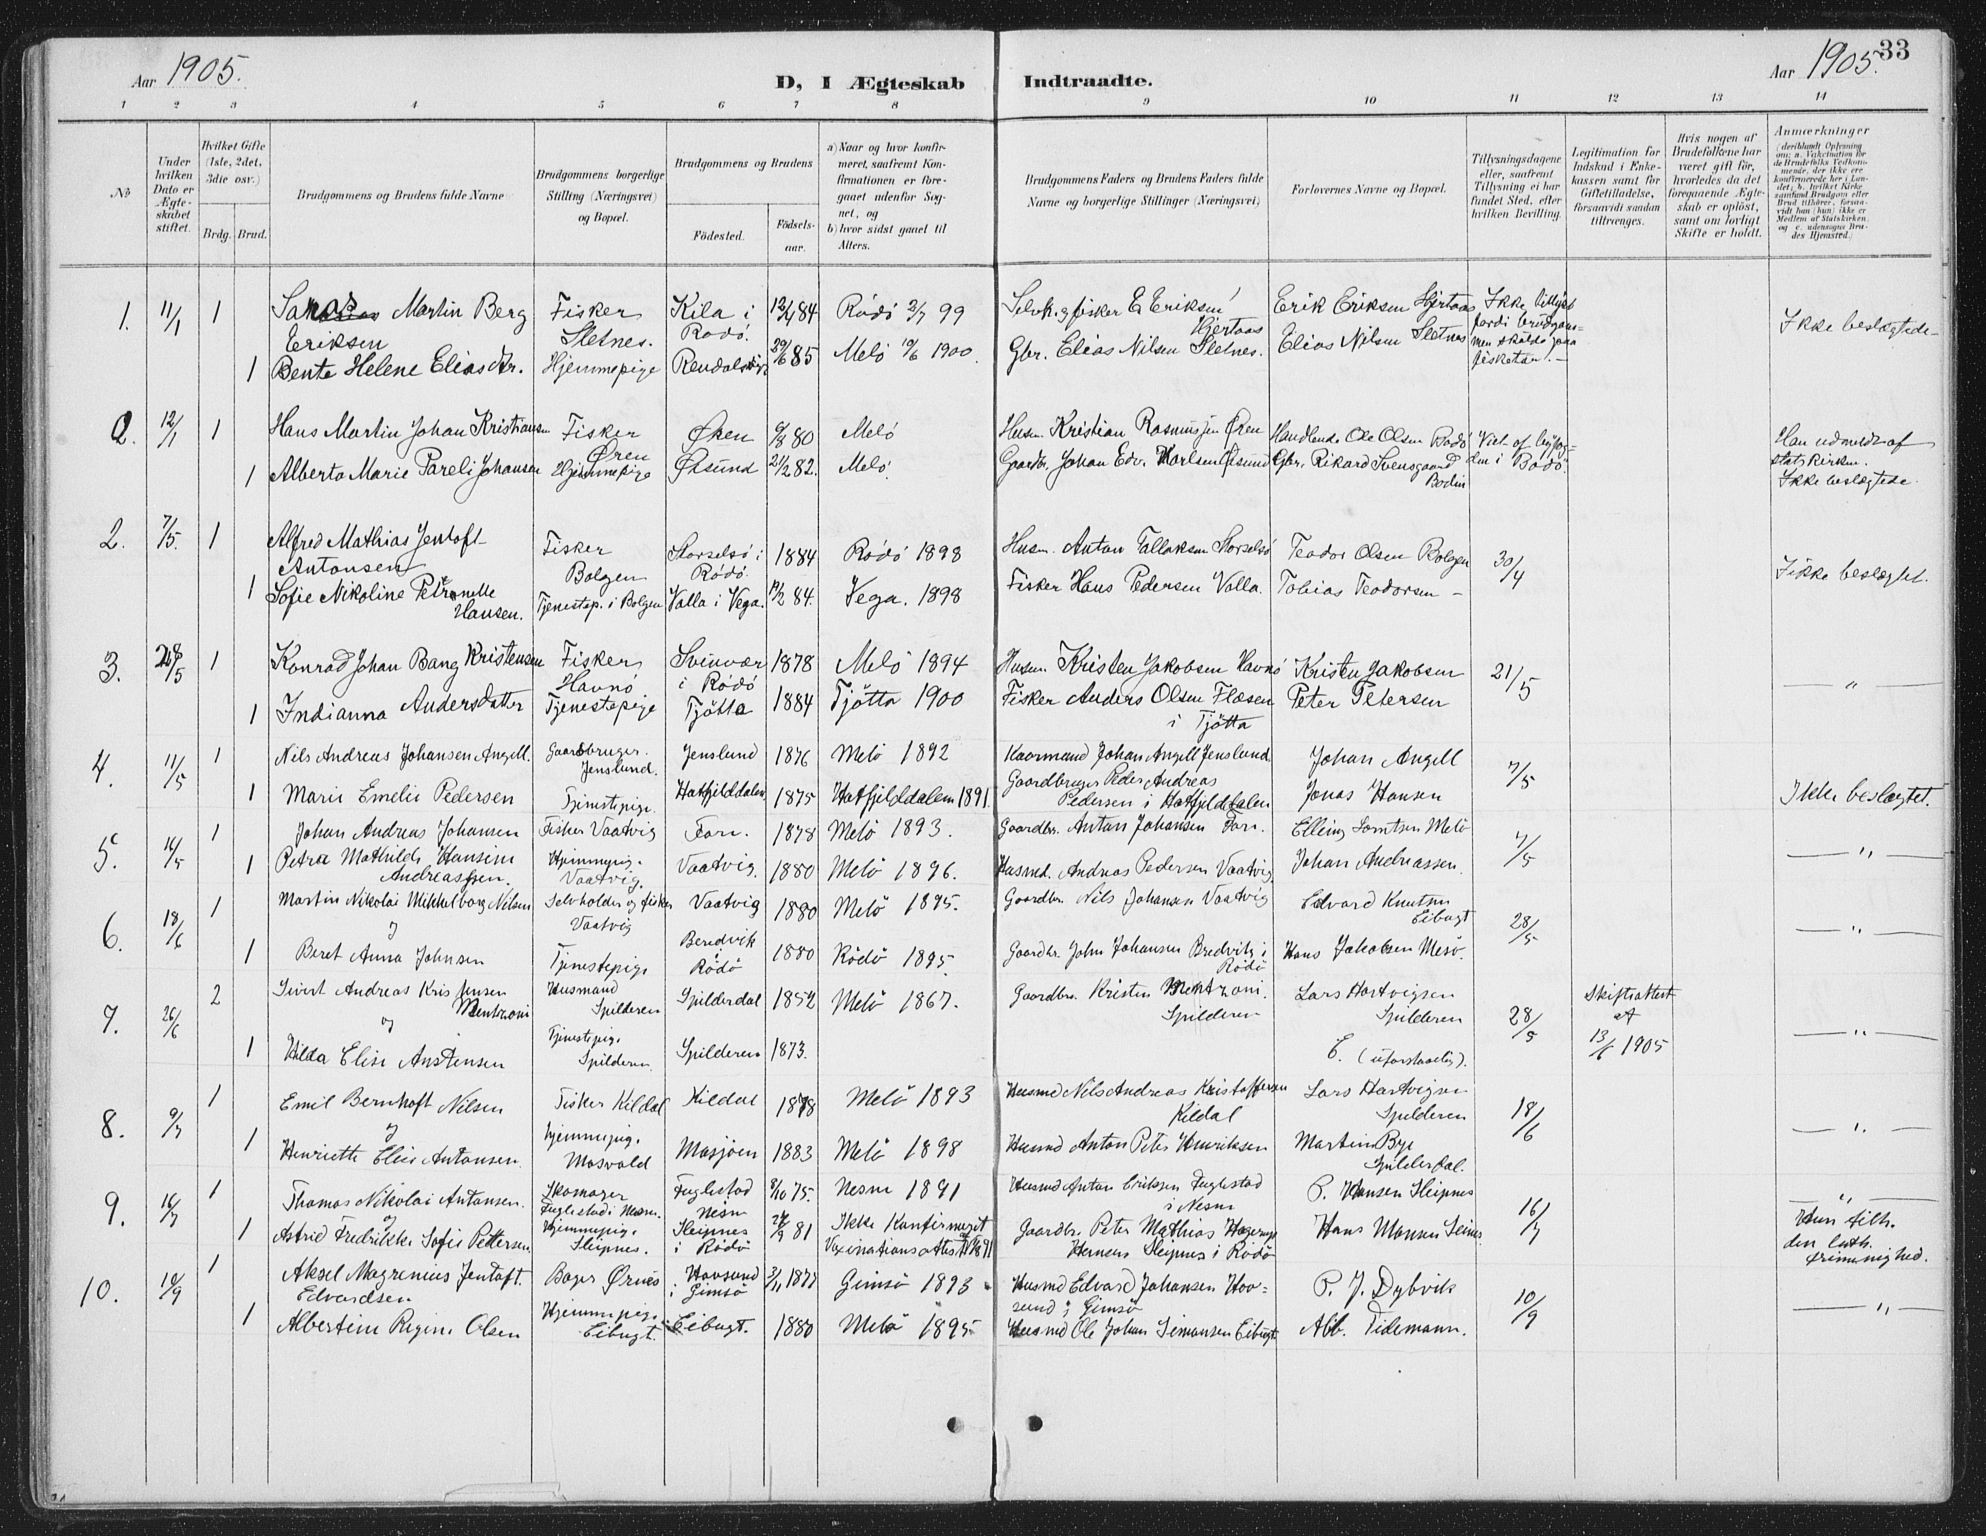 Aar 1905.
D, I Ægteskab Indtraadte.
Aar 1905. 33
1 2 3 4 5 6 7 8 9 10 11 12 13 14
No
Under hvilken Dato er Ægteskabet stiftet.
Hvilket Gifte (1ste, 2det, 3die osv.)
Brdg. Brud.
Brudgommens og Brudens fulde Navne
Brudgommens borgerlige Stilling (Næringsvei) og Bopæl.
Brudgommens og Brudens
Fødested.
Fødselsaar.
a) Naar og hvor konfirmeret, saafremt Konfirmationen er foregaaet udenfor Sognet, og
b) hvor sidst gaaet til Alters.
Brudgommens Faders og Brudens Faders fulde Navne og borgerlige Stillinger (Næringsvei)
Forlovernes Navne og Bopæl.
Tillysningsdagene eller, saafremt Tillysning ei har fundet Sted, efter hvilken Bevilling.
Legitimation for Indskud i Enkekassen samt for Giftetilladelse, forsaavidt saadan tiltrænges.
Hvis nogen af Brudefolkene har været gift før, hvorledes da det foregaaende Ægteskab er opløst, samt om lovligt Skifte er holdt.
Anmærkninger
(deriblandt Oplysning om: a. Vakcination for de Brudefolks Vedkommende, der ikke ere konfirmerede her i Landet; b. hvilket Kirkesamfund Brudgom eller Brud tilhører, forsaavidt han (hun) ikke er Medlem af Statskirken, og c. udensogns Brudes Hjemsted.)
1. 11/1 1 Martin Berg Eriksen Fisker Sletnes. Kila i Rødø. 12/4 84 Rødø 2/7 99 Selvh. og fisker E Eriksen Hjertaas Erik Eriksen Hjertaas Ikke tillyst fordi brudgommen skulde paa fisketur. Ikke beslægtede
1 Bente Helene Eliasdtr. Hjemmepige Rendalsvig 29/6 85 Melø 10/6 1900. Gbr. Elias Nilsen Sletnes. Elias Nilsen Sletnes
2. 12/1 1 Hans Martin Johan Kristiansen Fisker Øren Øren 9/8 80 Melø Husm. Kristian Rasmussen Øren Handlende Ole Olsen Bodø Viet af i Bodø. Han udmeldt af statskirken. Ikke beslægtede.
1 Alberta Marie Pareli Johansen Hjemmepige Øsund 21/2 82. Melø. Gaardbr. Johan Edv. Karlsen Øsund Gbr. Rikard Svensgaard Bodin
2. 7/5. 1 Alfred Mathias Jentoft Antonsen Fisker Bolgen Storselsø i Rødø. 1884 Rødø 1898 Husm. Anton Tallaksen Storselsø Teodor Olsen Bolgen 30/4 Ikke beslægtet.
1 Sofie Nikoline Petronelle Hansen. Tjenestep. i Bolgen Valla i Vega. 12/2 84. Vega. 1898 Fisker Hans Pedersen Valla. Tobias Teodorsen –
3. 28/5 1 Konrad Johan Bang Kristensen Fisker Havnø Svinvær i Rødø 1878 Melø 1894 Husm. Kristen Jakobsen Havnø Kristen Jakobsen 21/5 — " —
1 Indianna Andersdatter Tjenestepige Tjøtta 1884 Tjøtta 1900 Fisker Anders Olsen Flæsen i Tjøtta Peter Petersen
4. 11/5 1 Nils Andreas Johansen Angell. Gaardbruger. Jenslund. Jenslund 1876 Melø 1892 Kaarmand Johan Angell Jenslund. Johan Angell 7/5 Ikke beslægtet.
1 Marie Emelie Pedersen Tjenestepige. Hatfjelddalen 1875 Hatfjelddalen 1891. Gaardbruger Peder Andreas Pedersen i Hatfjelddalen Jonas Hansen
5. 14/5 1 Johan Andreas Johansen Fisker Vaatvig Forn. 1878 Melø 1893. Gaardbr. Antan Johansen Forn. Elling Lorntsen Melø 7/5 — " —
1 Petra Mathilde Hansine Andreassen. Hjemmepig. Vaatvig. Vaatvig. 1880 Melø 1896. Husmd. Andreas Pedersen Vaatvig. Johan Andreassen.
6. 18/6 1 Martin Nikolai Mikkelborg Nilsen Selvholder og fisker Vaatvig Vaatvig 1880 Melø 1895. Gaardbr. Nils Johansen Vaatvig Edvard Knutsen Eibugt 28/5 — " —
og
1 Beret Anna Johnsen Tjenestepige Beredvik i Rødø 1880 Rødø 1895. Gaardbr. John Johansen Bredvik i Rødø Hans Jakobsen Mesø.
7. 26/6 2 Sivert Andreas Kristensen Mentzoni Husmand Spilderen Spilderdal 1852 Melø 1867. Gaardbr. Kristen Mentzoni. Spilderen Lars Hartvigsen Spilderen 28/5 Skifteattest af 13/6 1905 — " —
og
1 Hilda Elise Anstensen Tjenestepig. Spilderen. Spilderen 1873. E. (uforstaaelig).
8. 9/7 1 Emil Bernhoft Nilsen Fisker Kildal Kildal 1878 Melø 1893 Husmd Nils Andreas Kristoffersen Kildal Lars Hartvigsen Spilderen 18/6 — " —
og
1 Henriette Elise Antonsen. Hjemmepig. Mosvold Mosjøen 1883 Melø 1898 Husmd Anton Peter Henriksen Martin Bye Spilderdal.
9. 16/7 1 Thomas Nikolai Antonsen. Skomager Fuglestad i Nesne. Fuglestad Nesne 8/10 75. Nesne 1891 Husmd Antan Eriksen Fuglestad i Nesne P. Hansen Sleipnes 16/7 — " —
og
1 Astrid Fredrikke Sofie Pettersen. Hjemmepig. Sleipnes. Sleipnes i Rødø 24/9 81 Ikke Konfirmeret Vaxinationsattest Gaardbr. Peter Mathias Hagerup Hernens Sleipnes i Rødø Hans Monsen Seines Hun tilh. den luth. frimenighed.
10. 10/9 1 Aksel Magrenius Jentoft. Edvardsen Bager Ørnes Hovsund i Gimsø 3/11 1877 Gimsø 1893. Husmd Edvard Johansen Hovsund i Gimsø P. J. Dybvik 10/9 — " —
1 Albertine Regine Olsen Hjemmepig. Eibugt. Eibugt. 1880 Melø 1895 Husmd Ole Johan Simonsen Eibugt. Alb. Tidemann.